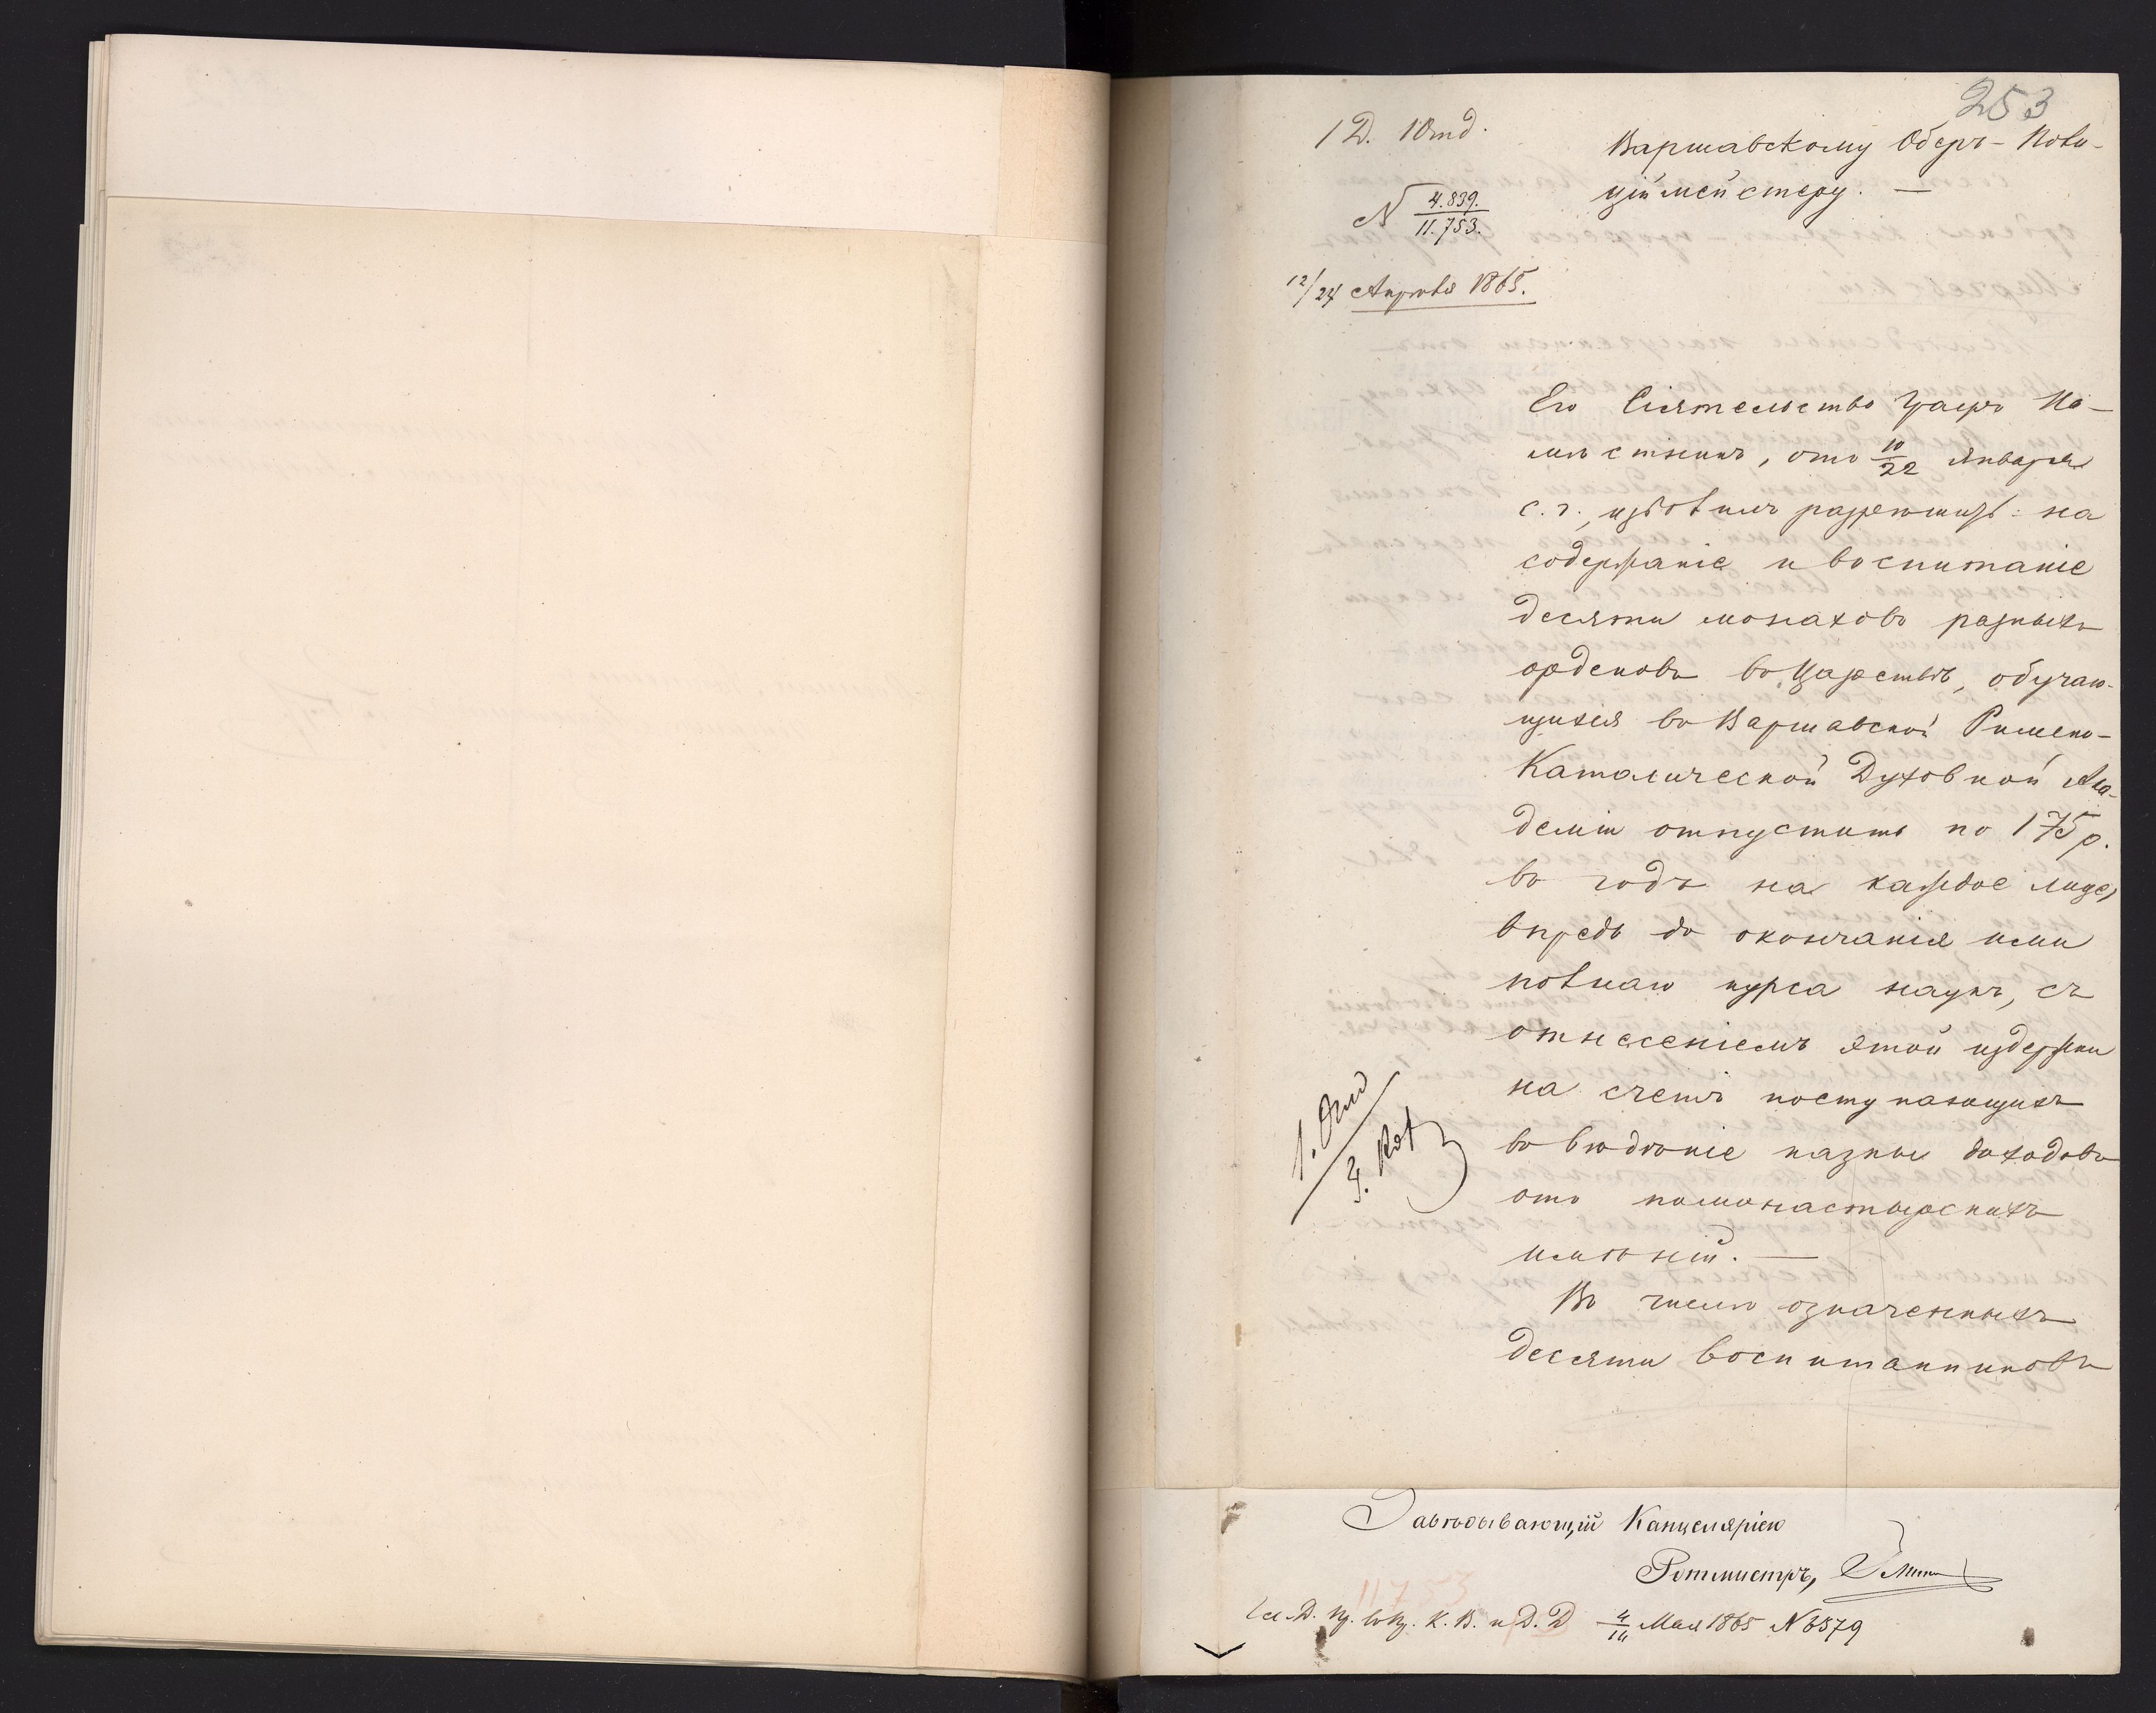 253
1 Д. 1 Отд.
Варшавскому Оберъ-Поли-
ціймейстеру. —
№ 4.839. / 11.753.
12/24 Апрѣля 1865.
Его Сіятельство Графъ На-
мѣстникъ, отъ 10/22 Января
с. г., изволилъ разрѣшить: на
содержаніе и воспитаніе
десяти монаховъ разныхъ
орденовъ въ Царствѣ, обучаю-
щихся въ Варшавской Римско-
Католической Духовной Ака-
деміи отпустить по 175 р.
въ годъ на каждое лице,
впредь до окончанія ими
полнаго курса наукъ, съ
отнесеніемъ этой издержки
на счетъ поступающихъ
въ вѣдѣніе казны доходовъ
отъ помонастырскихъ
имѣній. —
Въ числѣ означенныхъ
десяти воспитанниковъ
1. Отд
Завѣдывающій Канцеляріею
Ротмистръ,
11753
К. В. и Д. Д 4/16 Мая 1865 № 6579